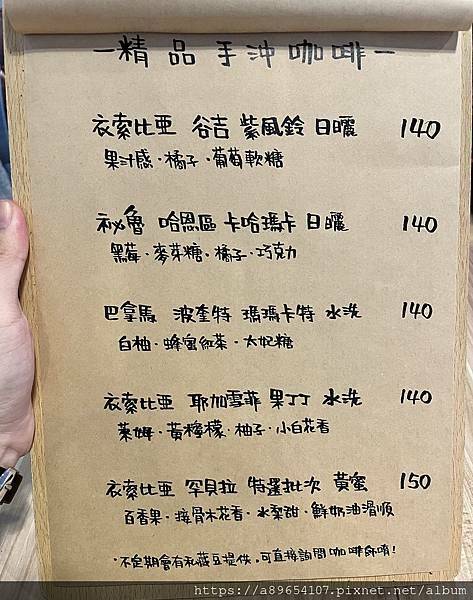 —精品手沖咖啡—
衣索比亞 谷吉 紫風鈴 日曬 140
果汁感·橘子·葡萄軟糖
祕魯 哈恩區 卡哈瑪卡 日曬 140
黑莓·麥芽糖·橘子·巧克力
巴拿馬 波奎特 瑪瑪卡特 水洗 140
白柚·蜂蜜紅茶·太妃糖
衣索比亞 耶加雪菲 果丁丁 水洗 140
萊姆·黃檸檬·柚子·小白花香
衣索比亞 罕貝拉 特選批次 黃蜜 150
百香果·接骨木花香·水梨甜·鮮奶油滑順
·不定期會有私藏豆提供,可直接詢問咖啡師唷!
https://a89654107.pixnet.net/album